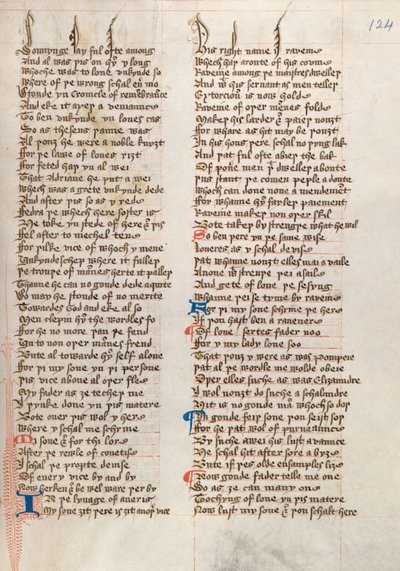 124
Sownynge lay ful ofte among
And al was þis on hym y long
Whoche was to loue vnkynde so
Where of þe wrong schal eu mo
Stonde yn Cronicle of remembrance
And eke it axeþ a veniaunce
To ben vnkynde yn loues cas
So as theseus þanne was
Al þouȝ he were a noble knyȝt
For þe lawe of loues riȝt
For feted hap yn al wey
That Adriane he put a wei
Whech was a grete vnkynde dede
And after þis so as y rede
Fedra þe whech here soster is
He toke yn stede of here & þis
Fel after to mechel tene
For þilke vice of whoch y mene
Unkyndeschep where it falleþ
Þe trouþe of mannes herte it palleþ
Thanne he can no gonde dede aquite
So may he stonde of no merite
Towardes god and eke al so
Men clepen hym þe worldes fo
For he no more þan þe fend
Un to non oþer mannes frend
Bute al towarde hym self alone
For þi my sone yn þi persone
Þis vice aboue al oþer fle
My fader as ȝe techeþ me
I þynke done yn þis matere
Bote ouer þis wol y here
Where y schal me schryue
Mi sone & for thi lore
After þe reule of couetise
I schal þe propte deuise
Of euery vice by and by
Now herken & be wel ware þer by
In þe lynage of aueris
My sone ȝit þere is ȝit anoþ vice
His right name is raueine
Whech haþ a route of his couine
Raueine among þe maistres dwelleþ
And wt his seruant as men telleþ
Extorcion is now holde
Raueine of oþer menes folde
Makeþ his larder & paieþ nouȝt
For whare as hit may be souȝt
In his hous þere schal no þyng lak
And þat ful ofte abieþ þe bak
Of pore men þt dwellen aboute
Þus stant þe comen peple a doute
Whoch can done none a mendement
For whanne hym faileþ paiement
Raueine makeþ non oþer skil
Bote takeþ by strengþe what he wil
So ben þere yn þe same wise
Loueres as y schal deuise
Þat whanne nouȝt elles mai availe
Anone wt strenþe þei asaile
And gete of loue þe sesyng
Whanne þei se tyme by raueine
For þi my sone schryue þe her
If þou hast ben a rauener
Of loue / certes fader noo
For y my lady loue soo
That þouȝ y were as was pompeie
Þat al þe worlde me wolde obeie
Oþer elles suche as was Elizandre
I wol nouȝt do suche a schlaundre
Hit is no gonde man whoch so doþ
In gonde feiþ sone þou seist soþ
For he þat wol of purueiance
By suche a wei his lust avaunce
He schal hit after sore a byȝe
Bute if þes olde ensamples liȝe
Now gonde fader telle me one
So as ȝe can many one
Tochyng of loue yn þis matere
Now lust my sone & þou schalt here